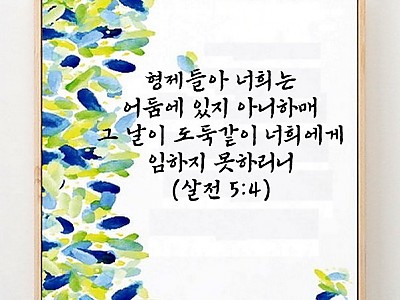 형제들아 너희는
어둠에 있지 아니하매
그 날이 도둑같이 너희에게
임하지 못하리니
(살전 5:4)